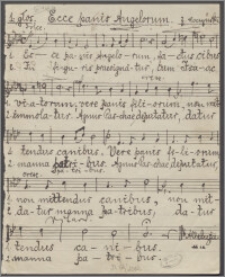 2 Głos. Ecce panis Angelorum.
dolce.
1. Ec - ce panis Angelo - rum, fa - ctus cibus
2. In figu - ris praesigna - tur, cum Isaac
cresc.
1. vi - a - torum, vere panis fili - orum, non mit
2. immola - tur, Agnus Paschae deputatur, datur
tendus canibus, Vere panis fi - li - orum
manna patri - bus. Agnus Paschae deputatur,
cresc. patri - bus.
non mittendus canibus, non mit -
da - tur manna patribus, datur
tendus ca - ni - bus.
manna pa - tri - bus.